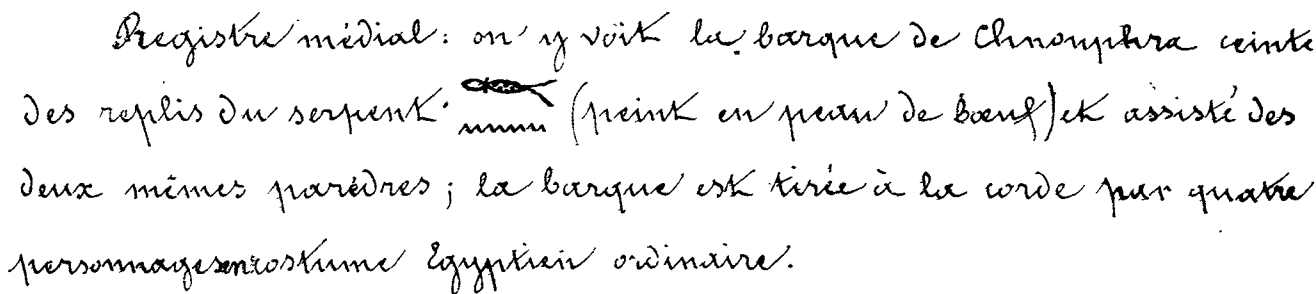 Registre médial: on y voit la barque de Chnouphra ceinte
des replis du serpent 𓆛𓈖 (peint en peau de bœuf) et assisté des
deux mêmes parèdres; la barque est tirée à la corde par quatre
personnages en costume Egyptien ordinaire.